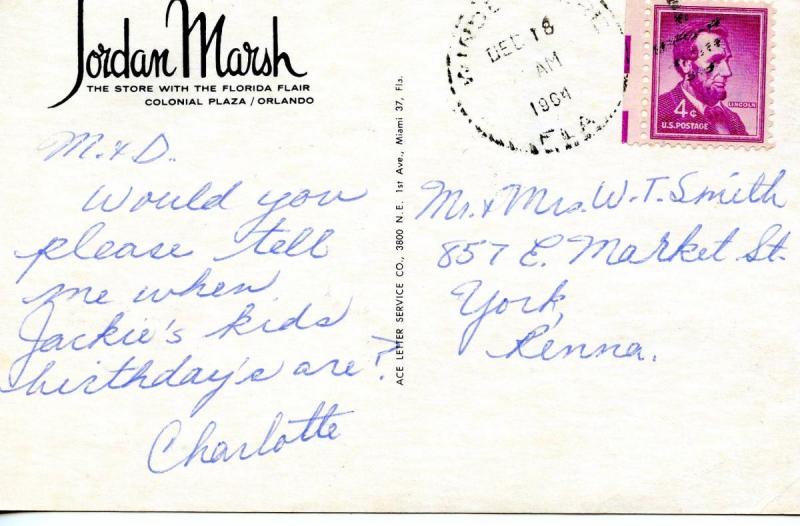 Jordan Marsh
THE STORE WITH THE FLORIDA FLAIR
COLONIAL PLAZA / ORLANDO
M. & D.
Would you
please tell
me when
Jackie's kids
birthday's are?
Charlotte
ACE LETTER SERVICE CO., 3800 N. E. 1st Ave., Miami 37, Fla.
DEC 18
AM
1964
FLA.
4¢
LINCOLN
U.S. POSTAGE
Mr. & Mrs. W. T. Smith
857 E. Market St.
York,
Penna.